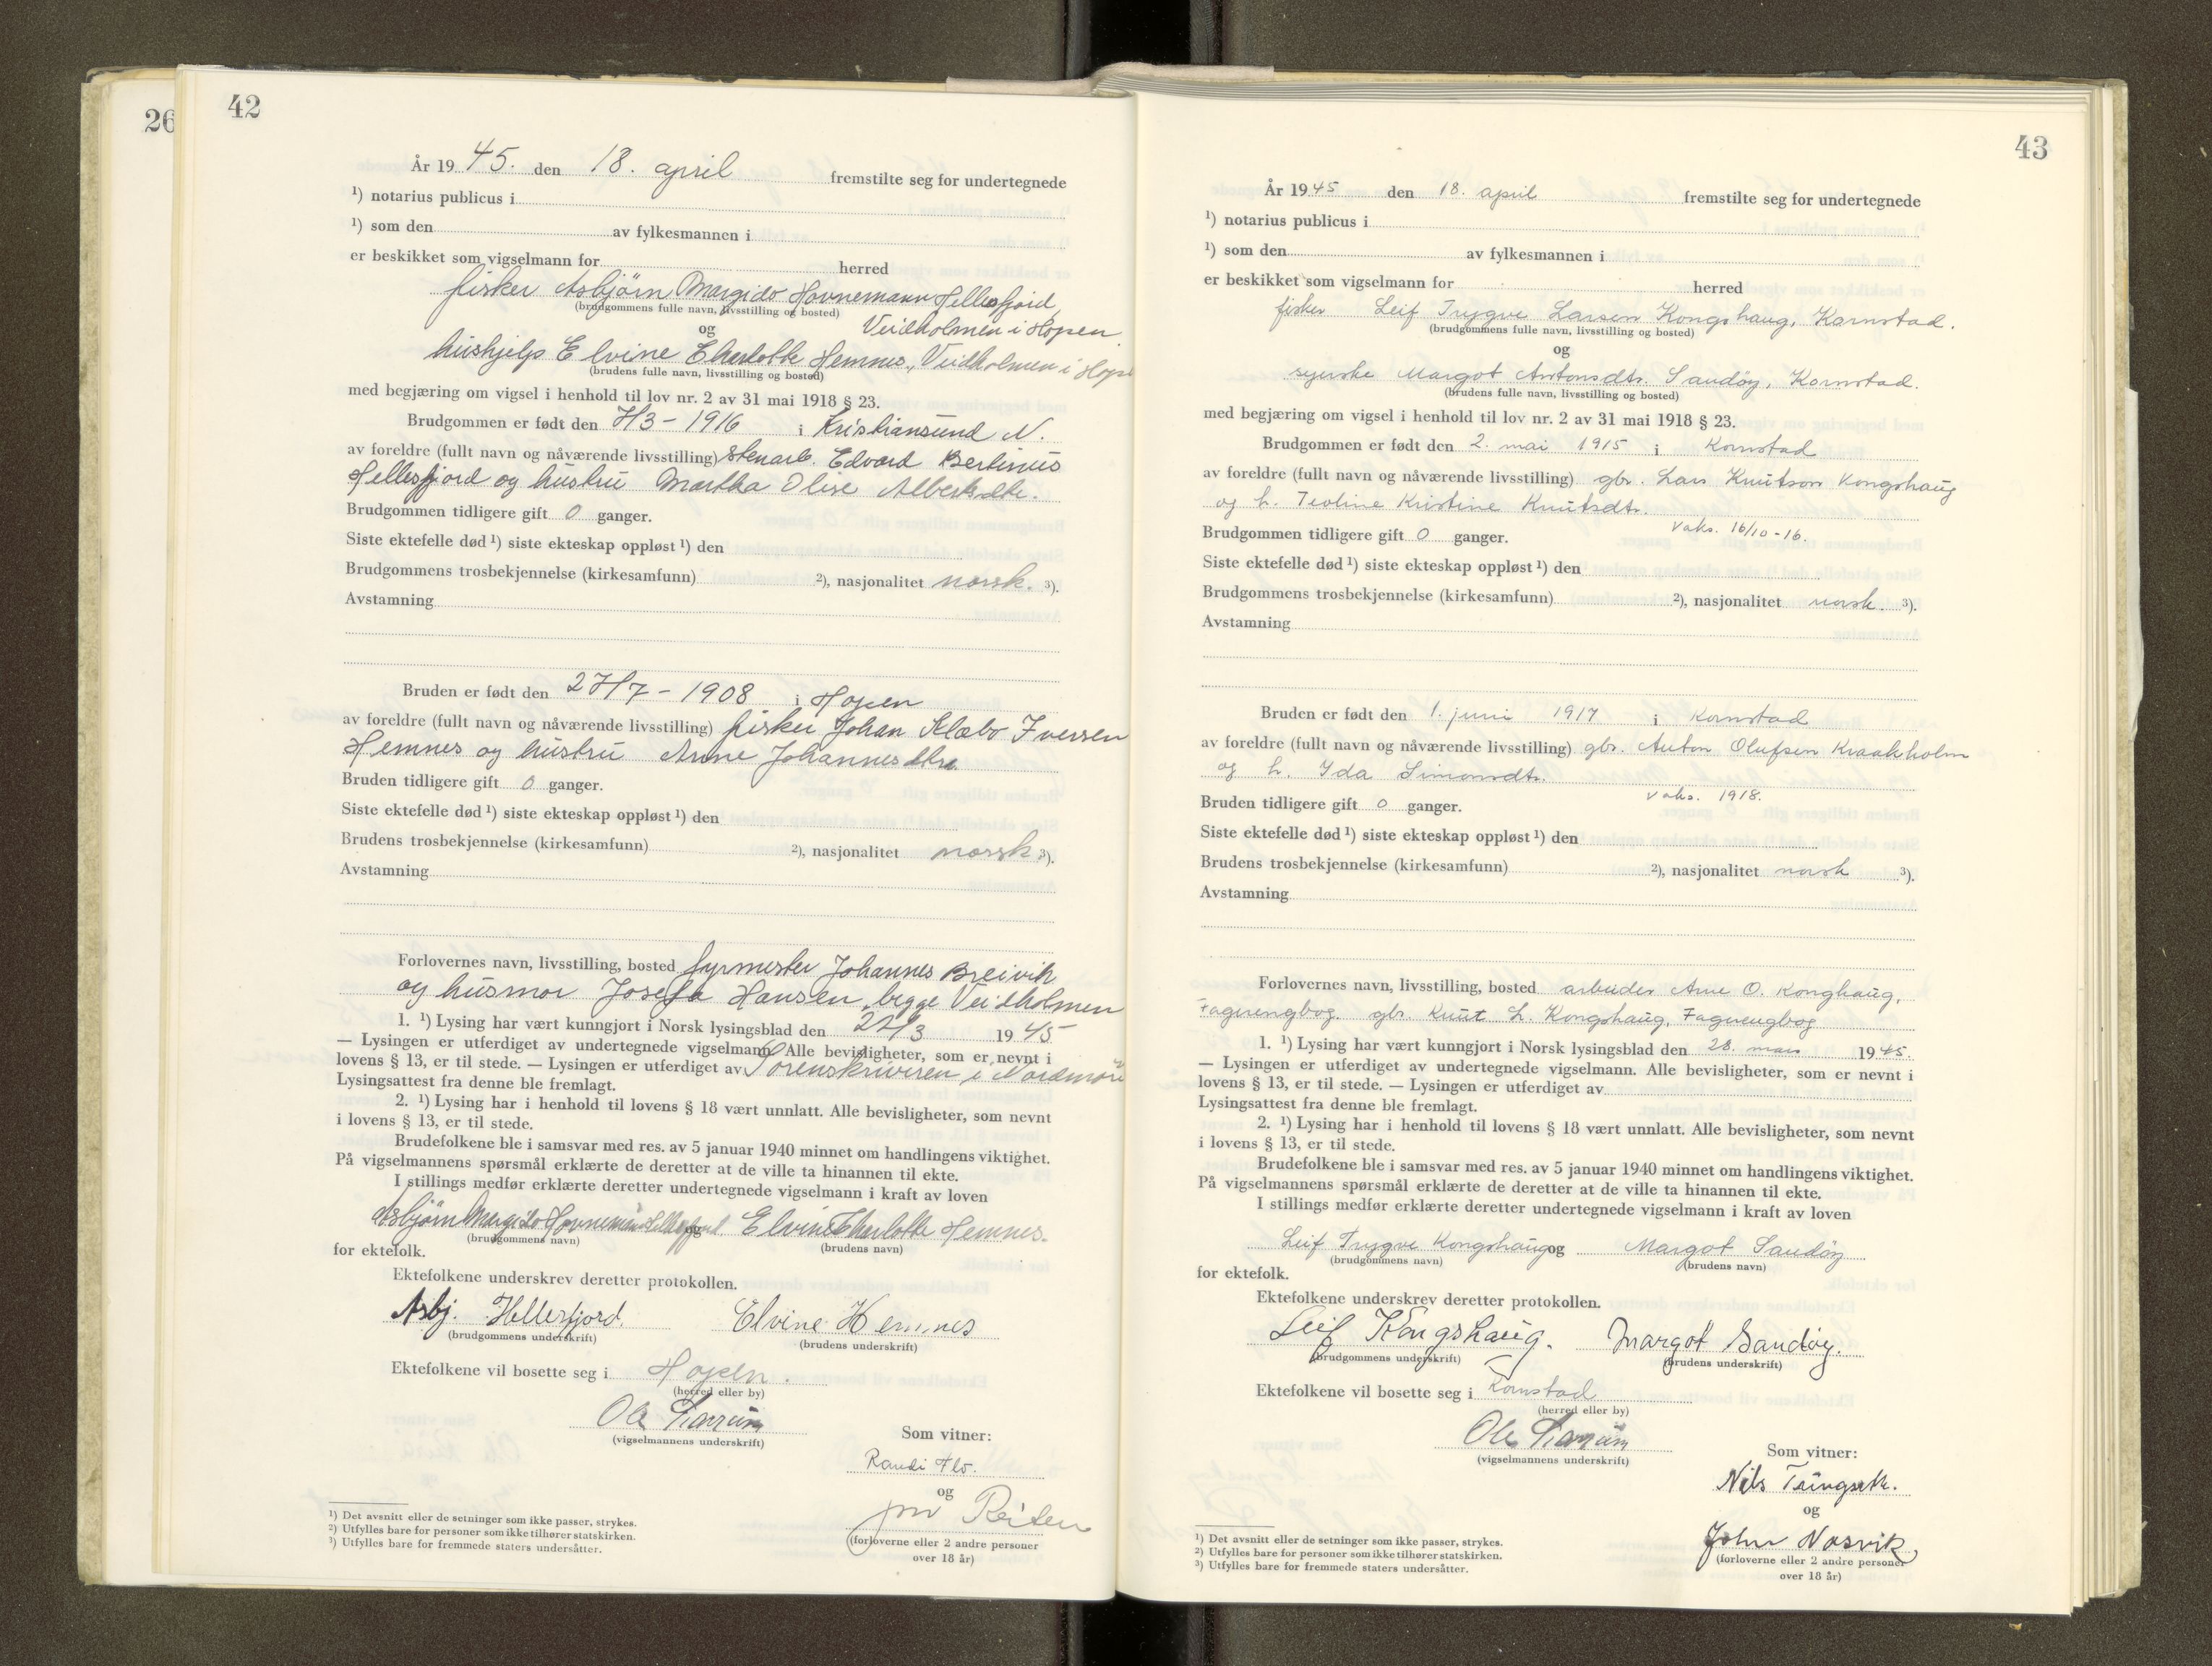 26
42
År 1945. den 18. april fremstilte seg for undertegnede
¹) notarius publicus i
¹) som den av fylkesmannen i
er beskikket som vigselmann for herred
fisker Asbjörn Margido Hovnemann Hellesfjord,
(brudgommens fulle navn, livsstilling og bosted)
og Veidholmen i Hopen.
hushjelp Elvine Charlotte Hemnes, Veidholmen i Hopen
(brudens fulle navn, livsstilling og bosted)
med begjæring om vigsel i henhold til lov nr. 2 av 31 mai 1918 § 23.
Brudgommen er født den 7/3 - 1916 i Kristiansund N.
av foreldre (fullt navn og nåværende livsstilling) stenarb. Edvard Bertinus
Hellesfjord og hustru Martha Olise Albertsdtr.
Brudgommen tidligere gift 0 ganger.
Siste ektefelle død ¹) siste ekteskap oppløst ¹) den
Brudgommens trosbekjennelse (kirkesamfunn) ²), nasjonalitet norsk. ³).
Avstamning
Bruden er født den 27/7 - 1908 i Hopen
av foreldre (fullt navn og nåværende livsstilling) fisker Johan Klæbo Iversen
Hemnes og hustru Anne Johannesdtr
Bruden tidligere gift 0 ganger.
Siste ektefelle død ¹) siste ekteskap oppløst ¹) den
Brudens trosbekjennelse (kirkesamfunn) ²), nasjonalitet norsk ³).
Avstamning
Forlovernes navn, livsstilling, bosted fyrmester Johannes Breivik
og husmor Josefa Hansen, begge Veidholmen
1. ¹) Lysing har vært kunngjort i Norsk lysingsblad den 1945
— Lysingen er utferdiget av undertegnede vigselmann. Alle bevisligheter, som er nevnt i
lovens § 13, er til stede. — Lysingen er utferdiget av Sorenskriveren i Nordmøre
Lysingsattest fra denne ble fremlagt.
2. ¹) Lysing har i henhold til lovens § 18 vært unnlatt. Alle bevisligheter, som nevnt
i lovens § 13, er til stede.
Brudefolkene ble i samsvar med res. av 5 januar 1940 minnet om handlingens viktighet.
På vigselmannens spørsmål erklærte de deretter at de ville ta hinannen til ekte.
I stillings medfør erklærte deretter undertegnede vigselmann i kraft av loven
Asbjörn Margido Hovnemann Hellesfjord og Elvine Charlotte Hemnes.
(brudgommens navn) (brudens navn)
for ektefolk.
Ektefolkene underskrev deretter protokollen.
Asbj. Hellesfjord. Elvine Hemnes
(brudgommens underskrift) (brudens underskrift)
Ektefolkene vil bosette seg i Hopen.
(herred eller by)
Ole
(vigselmannens underskrift)
Som vitner:
Randi Flo.
og
Reiten
(forloverne eller 2 andre personer
over 18 år)
¹) Det avsnitt eller de setninger som ikke passer, strykes.
²) Utfylles bare for personer som ikke tilhører statskirken.
³) Utfylles bare for fremmede staters undersåtter.
43
År 1945 den 18. april fremstilte seg for undertegnede
¹) notarius publicus i
¹) som den av fylkesmannen i
er beskikket som vigselmann for herred
fisker Leif Trygve Larsen Kongshaug, Kornstad.
(brudgommens fulle navn, livsstilling og bosted)
og
syerske Margot Antonsdtr. Sandöy, Kornstad.
(brudens fulle navn, livsstilling og bosted)
med begjæring om vigsel i henhold til lov nr. 2 av 31 mai 1918 § 23.
Brudgommen er født den 2. mai 1915 i Kornstad
av foreldre (fullt navn og nåværende livsstilling) gbr. Lars Knutson Kongshaug
og h. Teoline Kristine Knutsdtr.
vaks. 16/10-16.
Brudgommen tidligere gift 0 ganger.
Siste ektefelle død ¹) siste ekteskap oppløst ¹) den
Brudgommens trosbekjennelse (kirkesamfunn) ²), nasjonalitet norsk. ³).
Avstamning
Bruden er født den 1. juni 1917 i Kornstad
av foreldre (fullt navn og nåværende livsstilling) gbr. Anton Olufsen Kraakholm
og h. Ida Simonsdtr.
vaks. 1918.
Bruden tidligere gift 0 ganger.
Siste ektefelle død ¹) siste ekteskap oppløst ¹) den
Brudens trosbekjennelse (kirkesamfunn) ²), nasjonalitet norsk ³).
Avstamning
Forlovernes navn, livsstilling, bosted arbeider Arne O. Konghaug,
Fagernengbog. gbr. Knut L. Kongshaug,
1. ¹) Lysing har vært kunngjort i Norsk lysingsblad den 28. mars 1945.
— Lysingen er utferdiget av undertegnede vigselmann. Alle bevisligheter, som er nevnt i
lovens § 13, er til stede. — Lysingen er utferdiget av
Lysingsattest fra denne ble fremlagt.
2. ¹) Lysing har i henhold til lovens § 18 vært unnlatt. Alle bevisligheter, som nevnt
i lovens § 13, er til stede.
Brudefolkene ble i samsvar med res. av 5 januar 1940 minnet om handlingens viktighet.
På vigselmannens spørsmål erklærte de deretter at de ville ta hinannen til ekte.
I stillings medfør erklærte deretter undertegnede vigselmann i kraft av loven
Leif Trygve Kongshaug og Margot Sandöy
(brudgommens navn) (brudens navn)
for ektefolk.
Ektefolkene underskrev deretter protokollen.
Leif Kongshaug. Margot Sandöy.
(brudgommens underskrift) (brudens underskrift)
Ektefolkene vil bosette seg i Kornstad
(herred eller by)
Ole
(vigselmannens underskrift)
Som vitner:
Nils
og
John Nasvik
(forloverne eller 2 andre personer
over 18 år)
¹) Det avsnitt eller de setninger som ikke passer, strykes.
²) Utfylles bare for personer som ikke tilhører statskirken.
³) Utfylles bare for fremmede staters undersåtter.